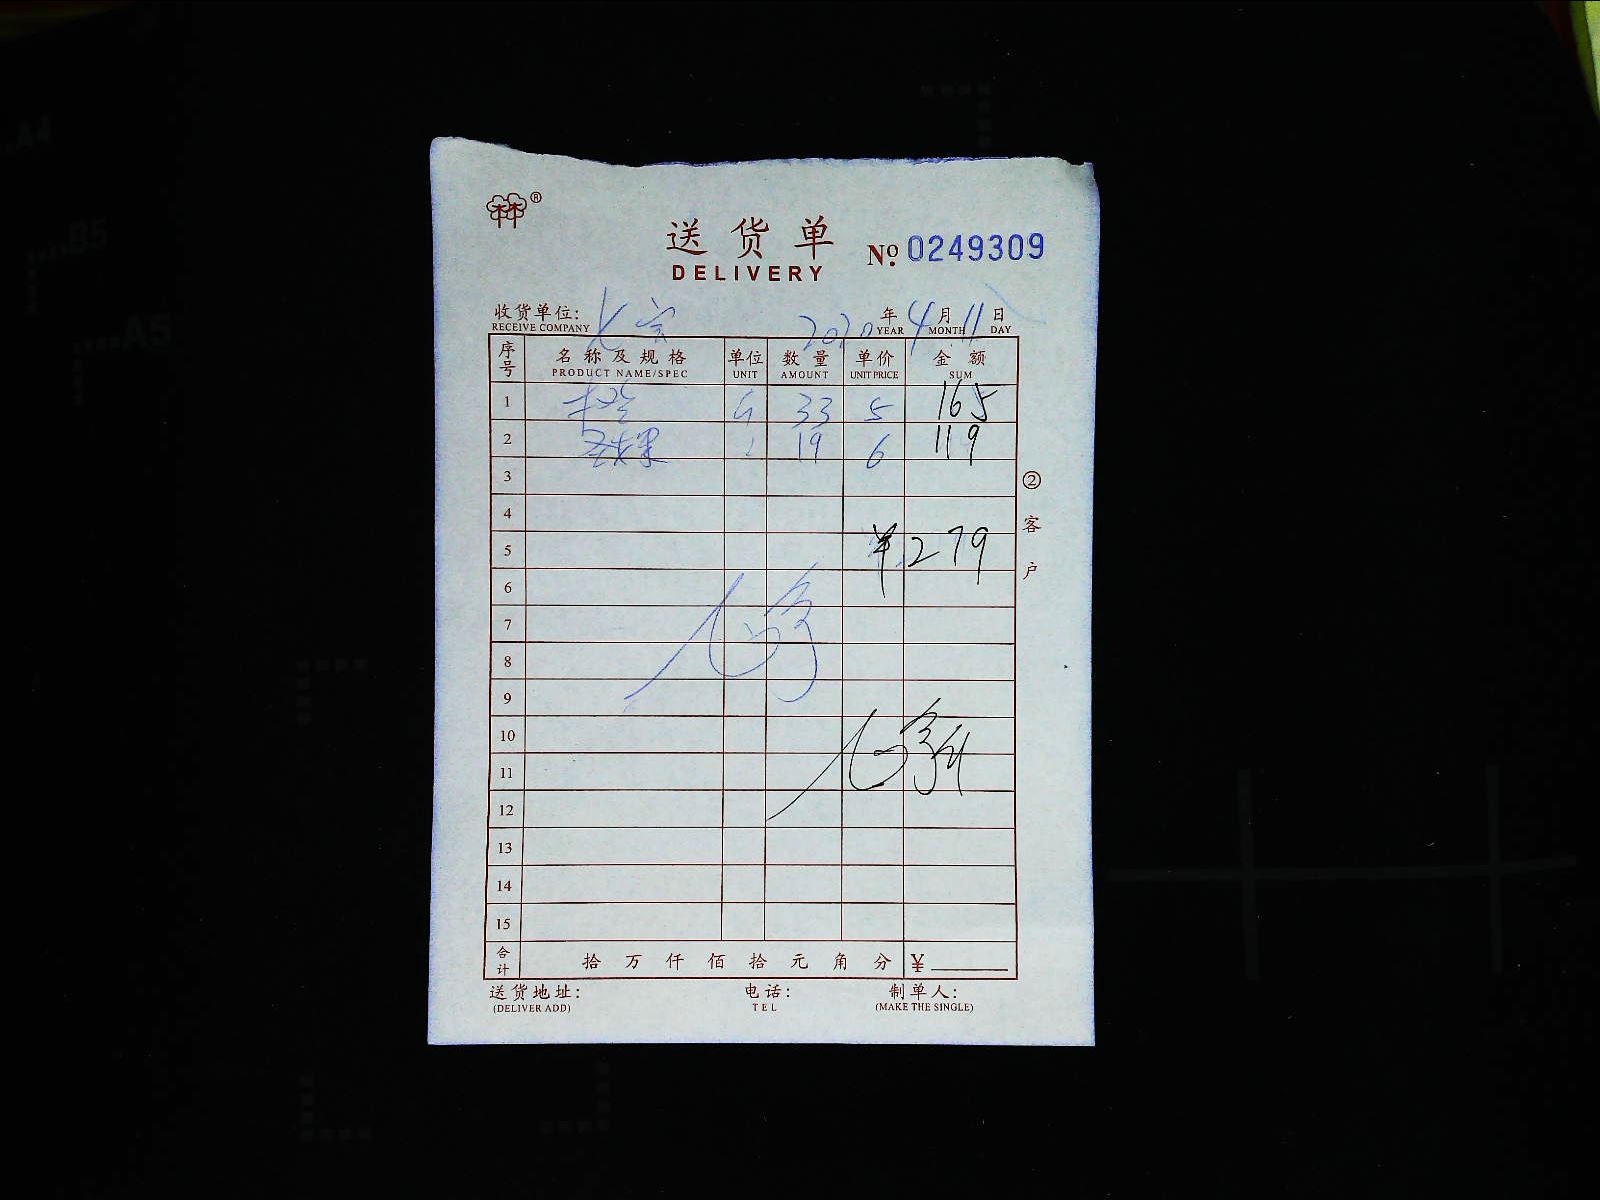 林®
送货单
DELIVERY
№ 0249309
收货单位: 2020 年 4 月 11 日
RECEIVE COMPANY YEAR MONTH DAY
序号 名称及规格 单位 数量 单价 金额
PRODUCT NAME/SPEC UNIT AMOUNT UNIT PRICE SUM
1 33 5 165
2 19 6 119
3
4
5 ¥279
6
7
8
9
10
11
12
13
14
15
合计 拾 万 仟 佰 拾 元 角 分 ¥
送货地址: 电话: 制单人:
(DELIVER ADD) TEL (MAKE THE SINGLE)
② 客户
A4
B5
A5